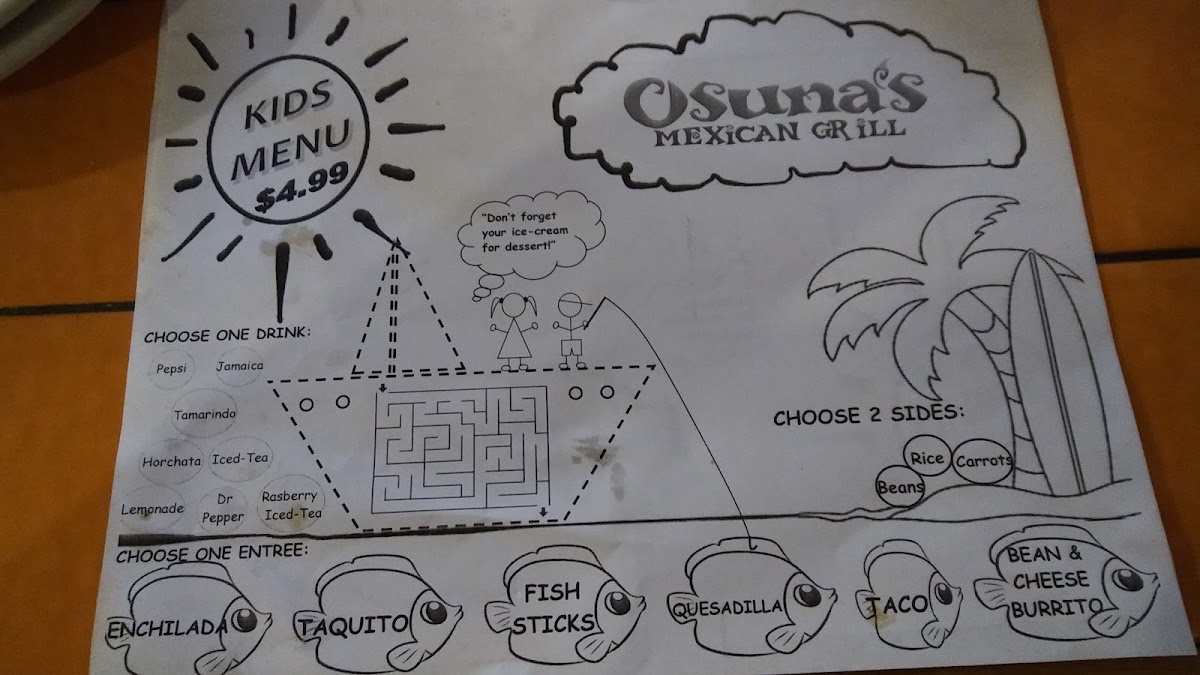 KIDS
MENU
$4.99
Osuna's
MEXICAN GRILL
"Don't forget
your ice-cream
for dessert!"
CHOOSE ONE DRINK:
Pepsi
Jamaica
Tamarindo
Horchata
Iced-Tea
Lemonade
Dr
Pepper
Rasberry
Iced-Tea
CHOOSE 2 SIDES:
Rice
Carrots
Beans
CHOOSE ONE ENTREE:
ENCHILADA
TAQUITO
FISH
STICKS
QUESADILLA
TACO
BEAN &
CHEESE
BURRITO